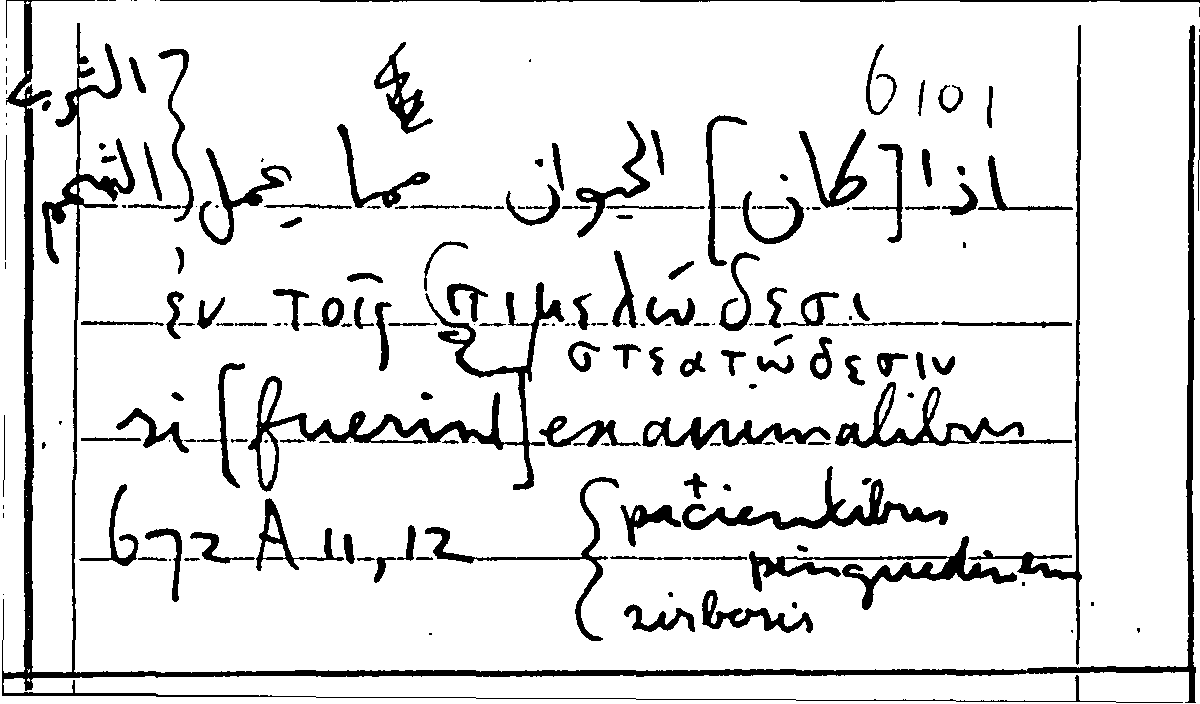 6101
اذا [كان] الحيوان مما يعمل { الثرب
الشحم
ἐν τοῖς { πιμελώδεσι
στεατώδεσιν
si [fuerint] ex animalibus
672 A 11, 12 { facientibus
pinguedinem
zirbosis